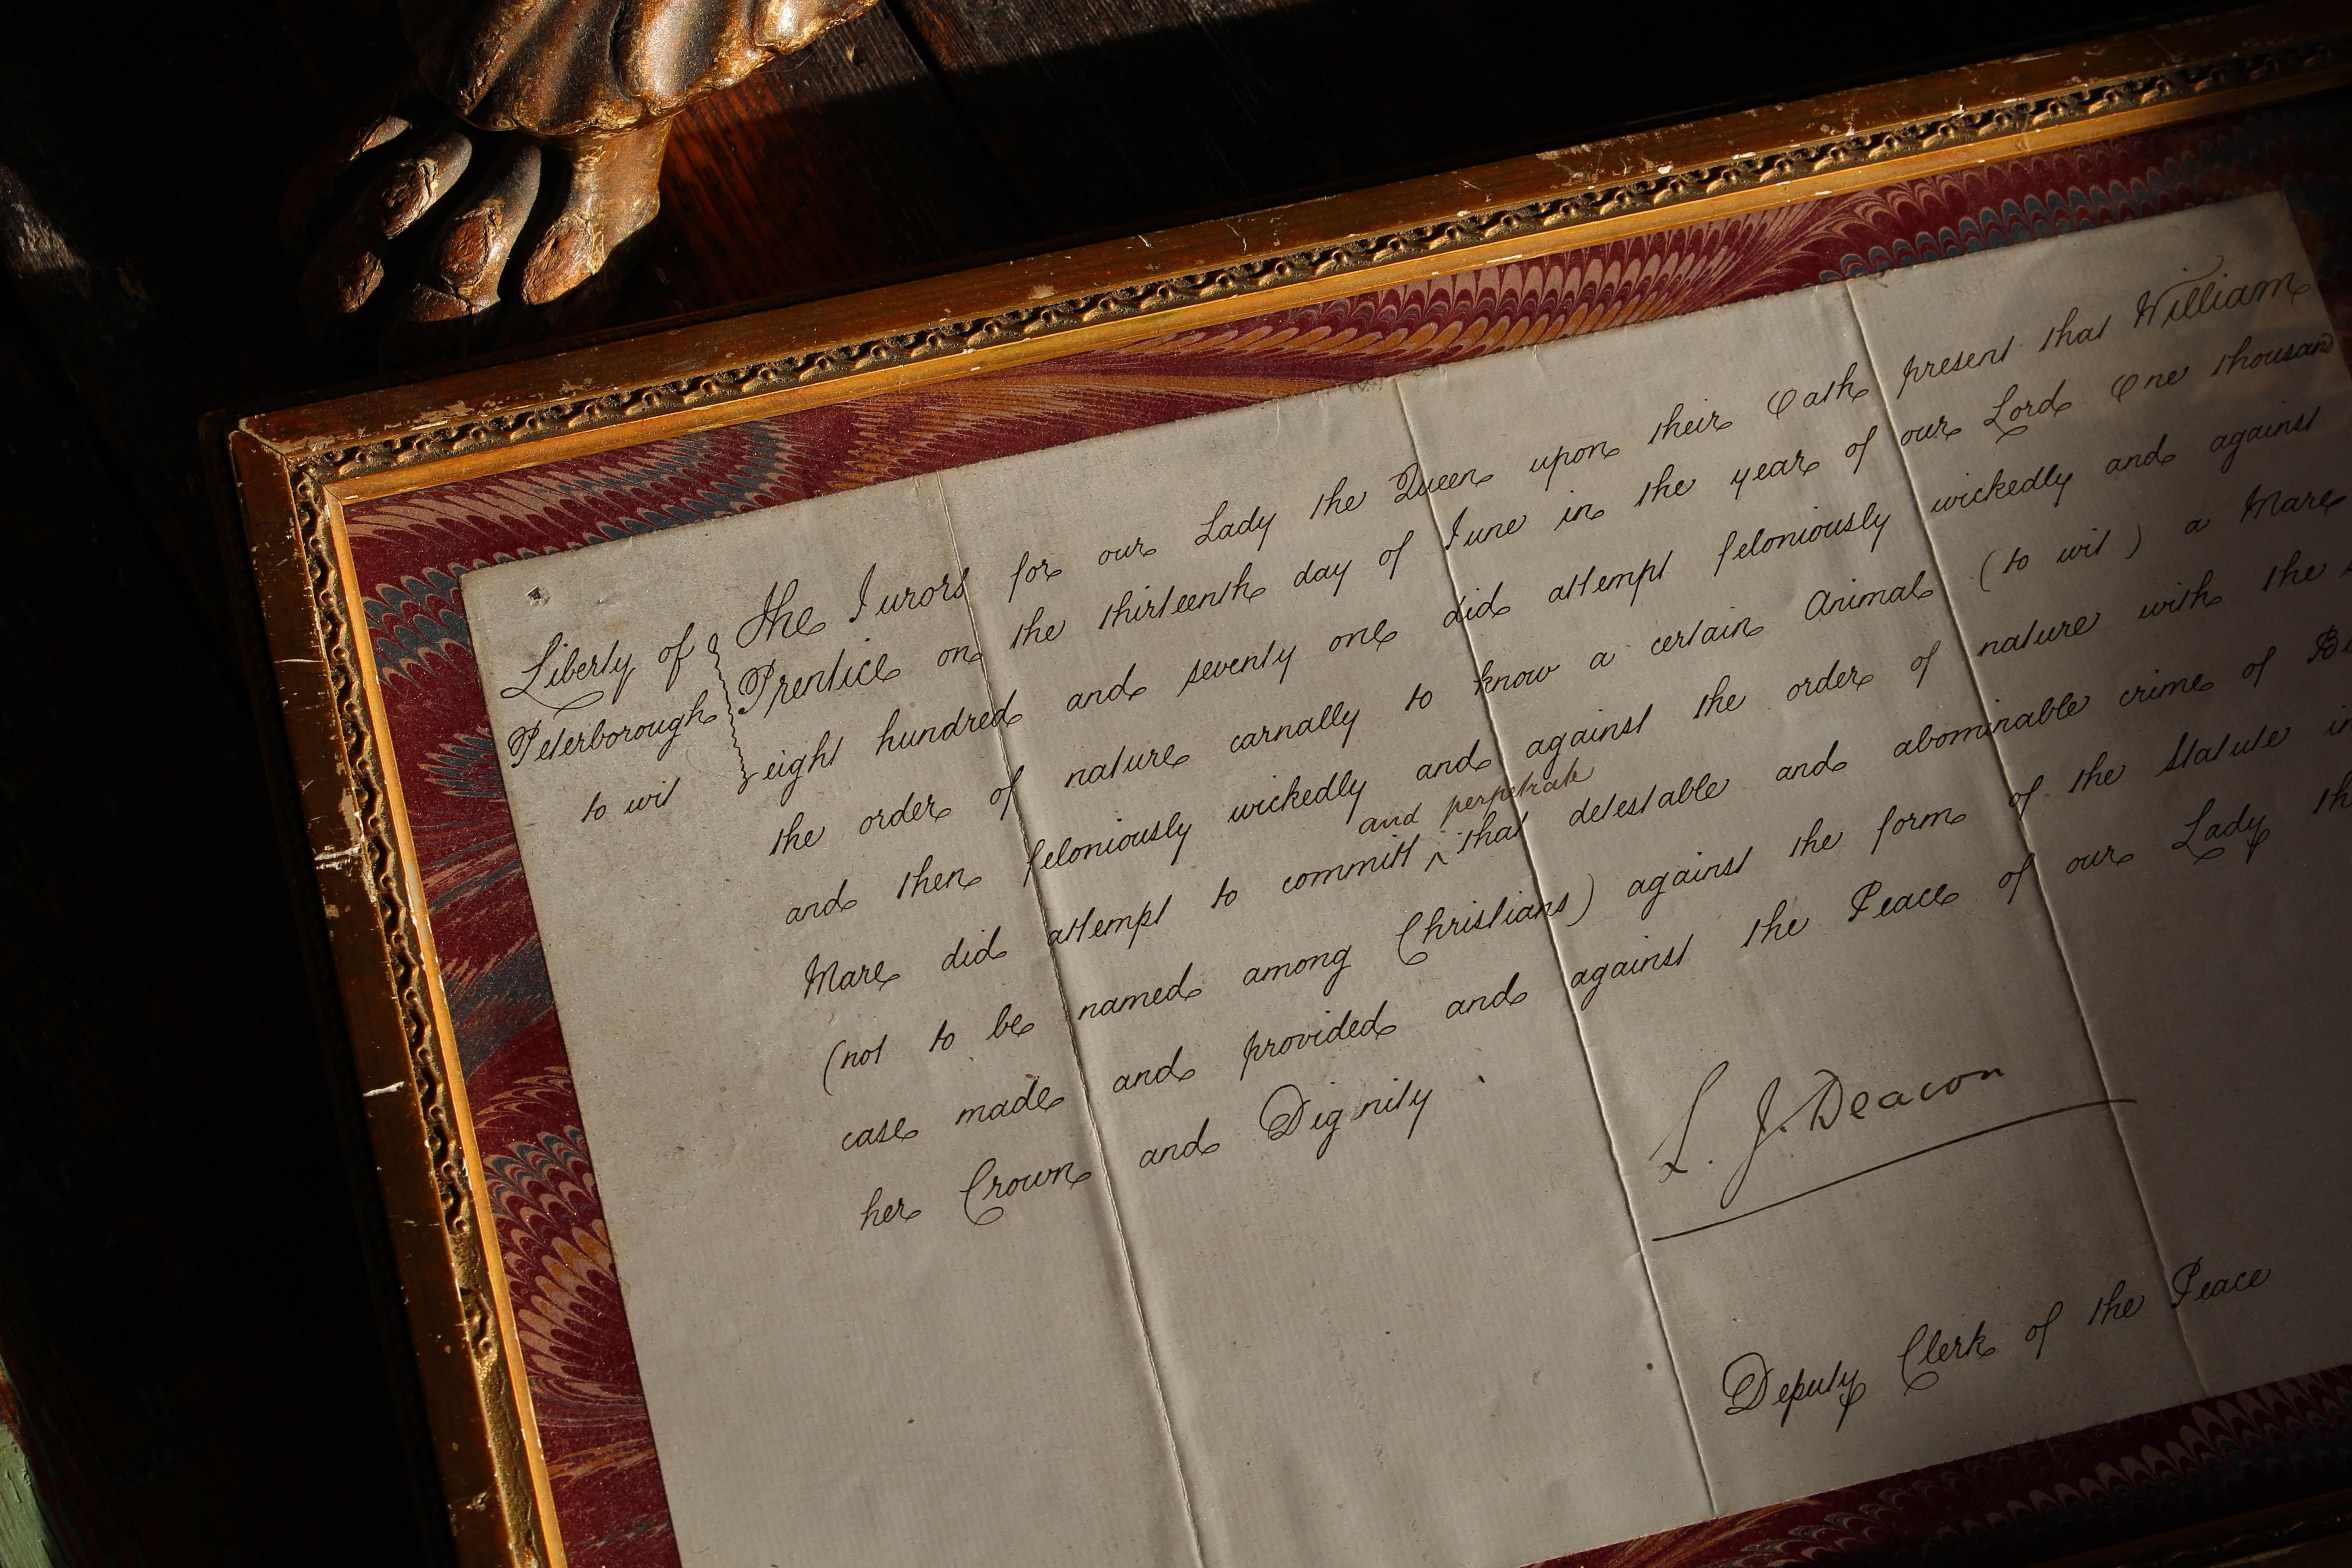 Liberty of
Peterborough
to wit
The Jurors for our Lady the Queen upon their Oath present that William
Prentice on the thirteenth day of June in the year of our Lord One thousand
eight hundred and seventy one did attempt feloniously wickedly and against
the order of nature carnally to know a certain Animal (to wit) a Mare
and then feloniously wickedly and against the order of nature with the
and perpetrate
Mare did attempt to committ ^ that detestable and abominable crime of
(not to be named among Christians) against the form of the Statute in
case made and provided and against the Peace of our Lady
her Crown and Dignity.
L. J. Deacon
Deputy Clerk of the Peace